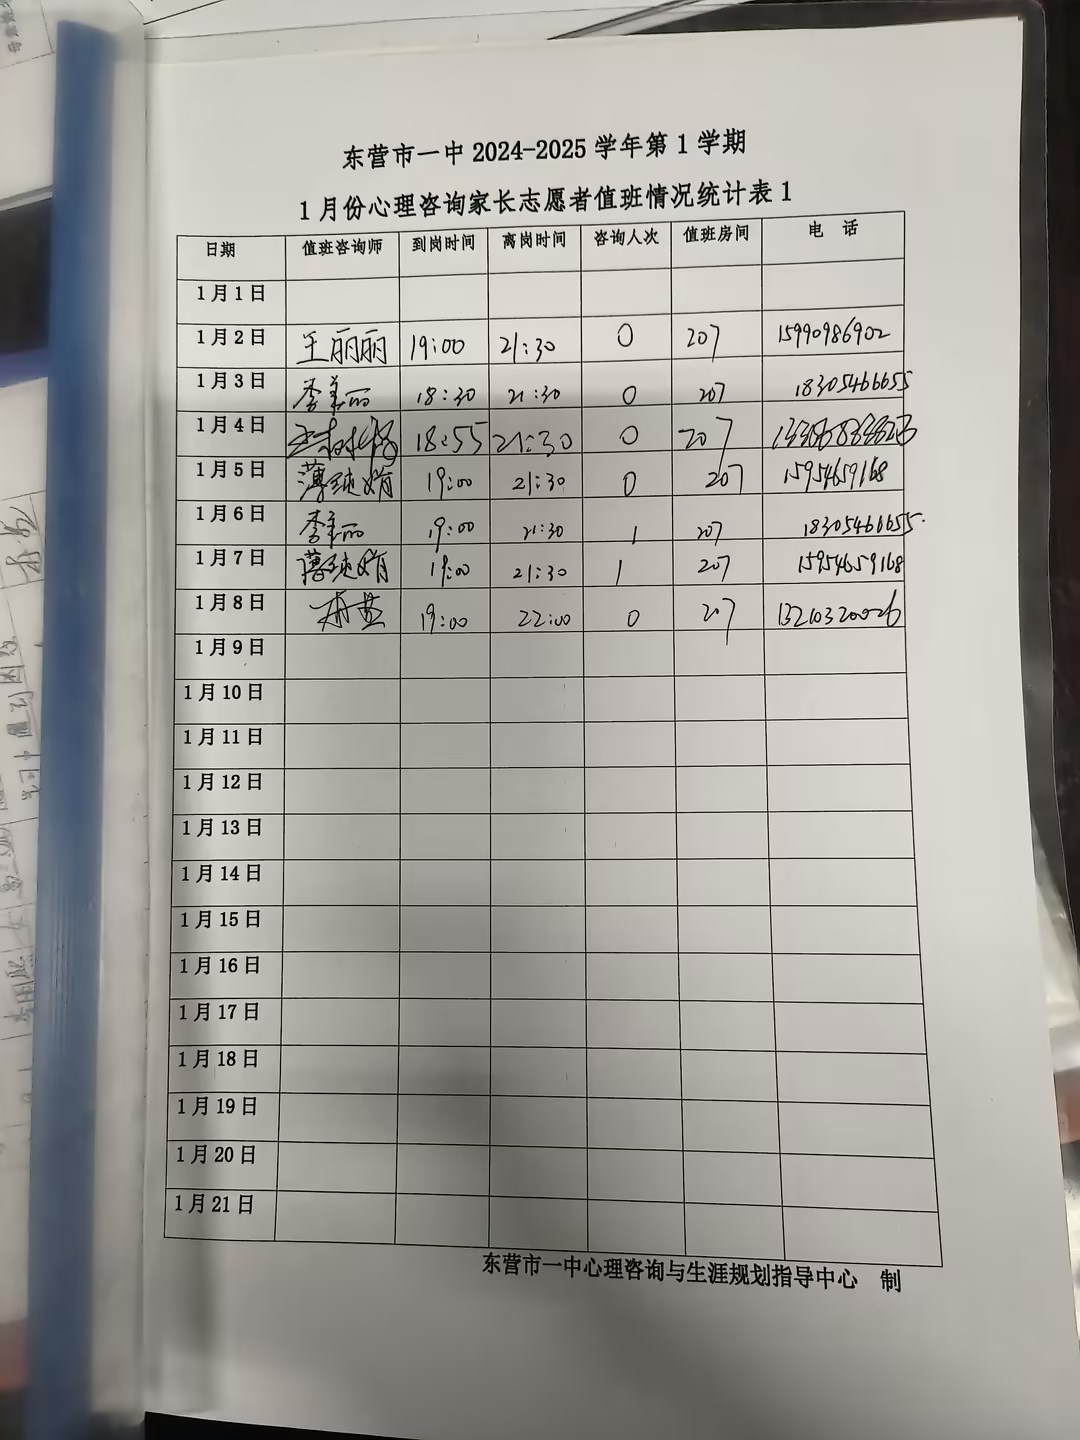 东营市一中 2024-2025 学年第 1 学期
1 月份心理咨询家长志愿者值班情况统计表 1
日期 值班咨询师 到岗时间 离岗时间 咨询人次 值班房间 电 话
1 月 1 日
1 月 2 日 王丽丽 19:00 21:30 0 207 15990986902
1 月 3 日 李美丽 18:30 21:30 0 207 18305466655
1 月 4 日 18:55 21:30 0 207
1 月 5 日 薄纯娟 19:00 21:30 0 207 15954659168
1 月 6 日 李美丽 19:00 21:30 1 207 18305466655.
1 月 7 日 薄纯娟 19:00 21:30 1 207 15954659168
1 月 8 日 19:00 22:00 0 207 13210320026
1 月 9 日
1 月 10 日
1 月 11 日
1 月 12 日
1 月 13 日
1 月 14 日
1 月 15 日
1 月 16 日
1 月 17 日
1 月 18 日
1 月 19 日
1 月 20 日
1 月 21 日
东营市一中心理咨询与生涯规划指导中心 制